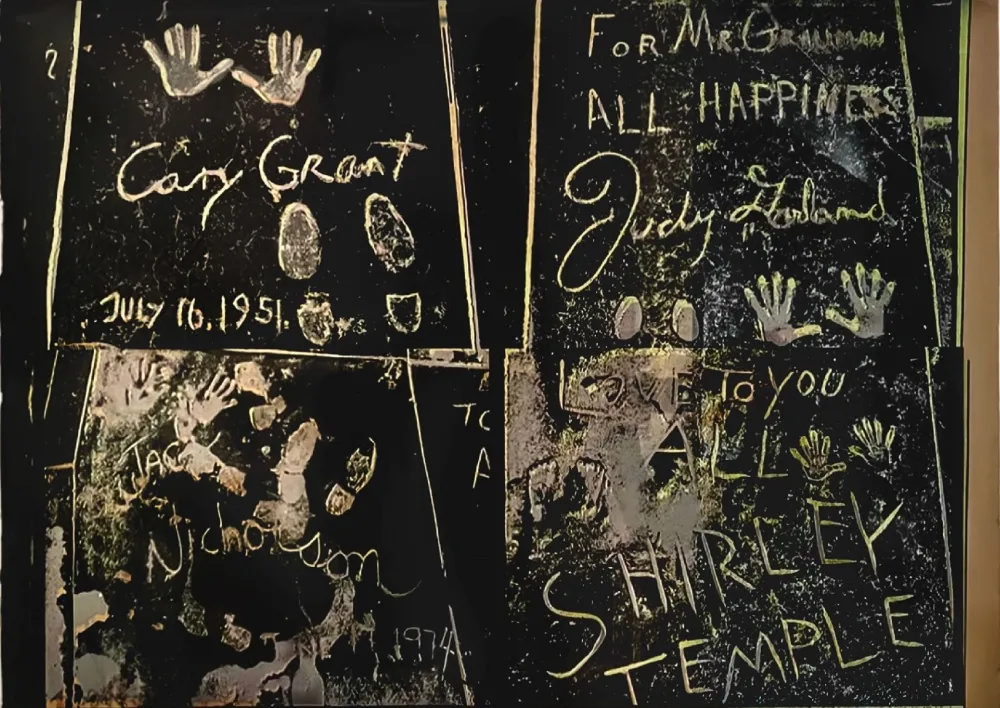 Cary Grant
JULY 16, 1951.
FOR MR. Grauman
ALL HAPPINESS
Judy Garland
JACK
Nicholson
1974
TO
A
LOVE TO YOU
ALL
SHIRLEY
TEMPLE